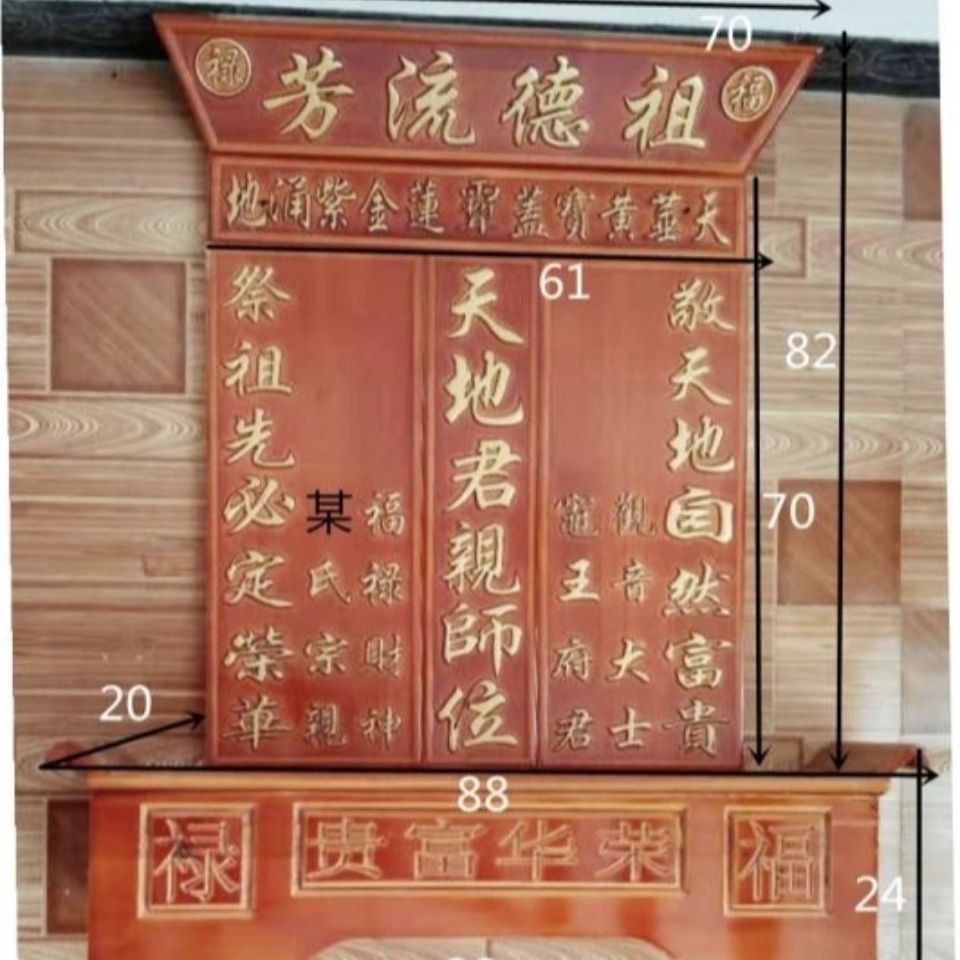 70
福
祖德流芳
禄
天黄寶蓋蓮金紫涌地
61
82
敬天地自然富貴
觀音大士
竈王府君
天地君親師位
福禄財神
某氏宗親
祭祖先必定榮華
70
20
88
福
荣华富贵
禄
24